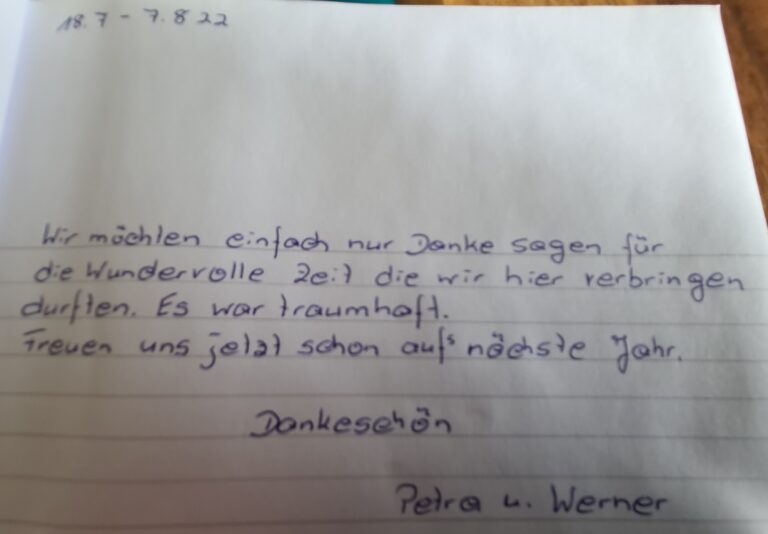 18.7 - 7.8 22
Wir möchten einfach nur Danke sagen für
die Wundervolle Zeit die wir hier verbringen
durften. Es war traumhaft.
Freuen uns jetzt schon aufs nächste Jahr.
Dankeschön
Petra u. Werner